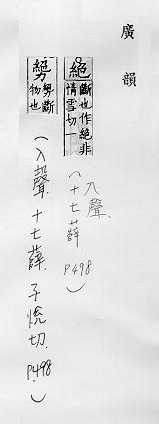 廣韻
絕 斷也作絕非
情雪切一
(入聲
十七薛
P498)
㔢 㔢斷
物也
(入聲十七薛 子悅切 P.498)